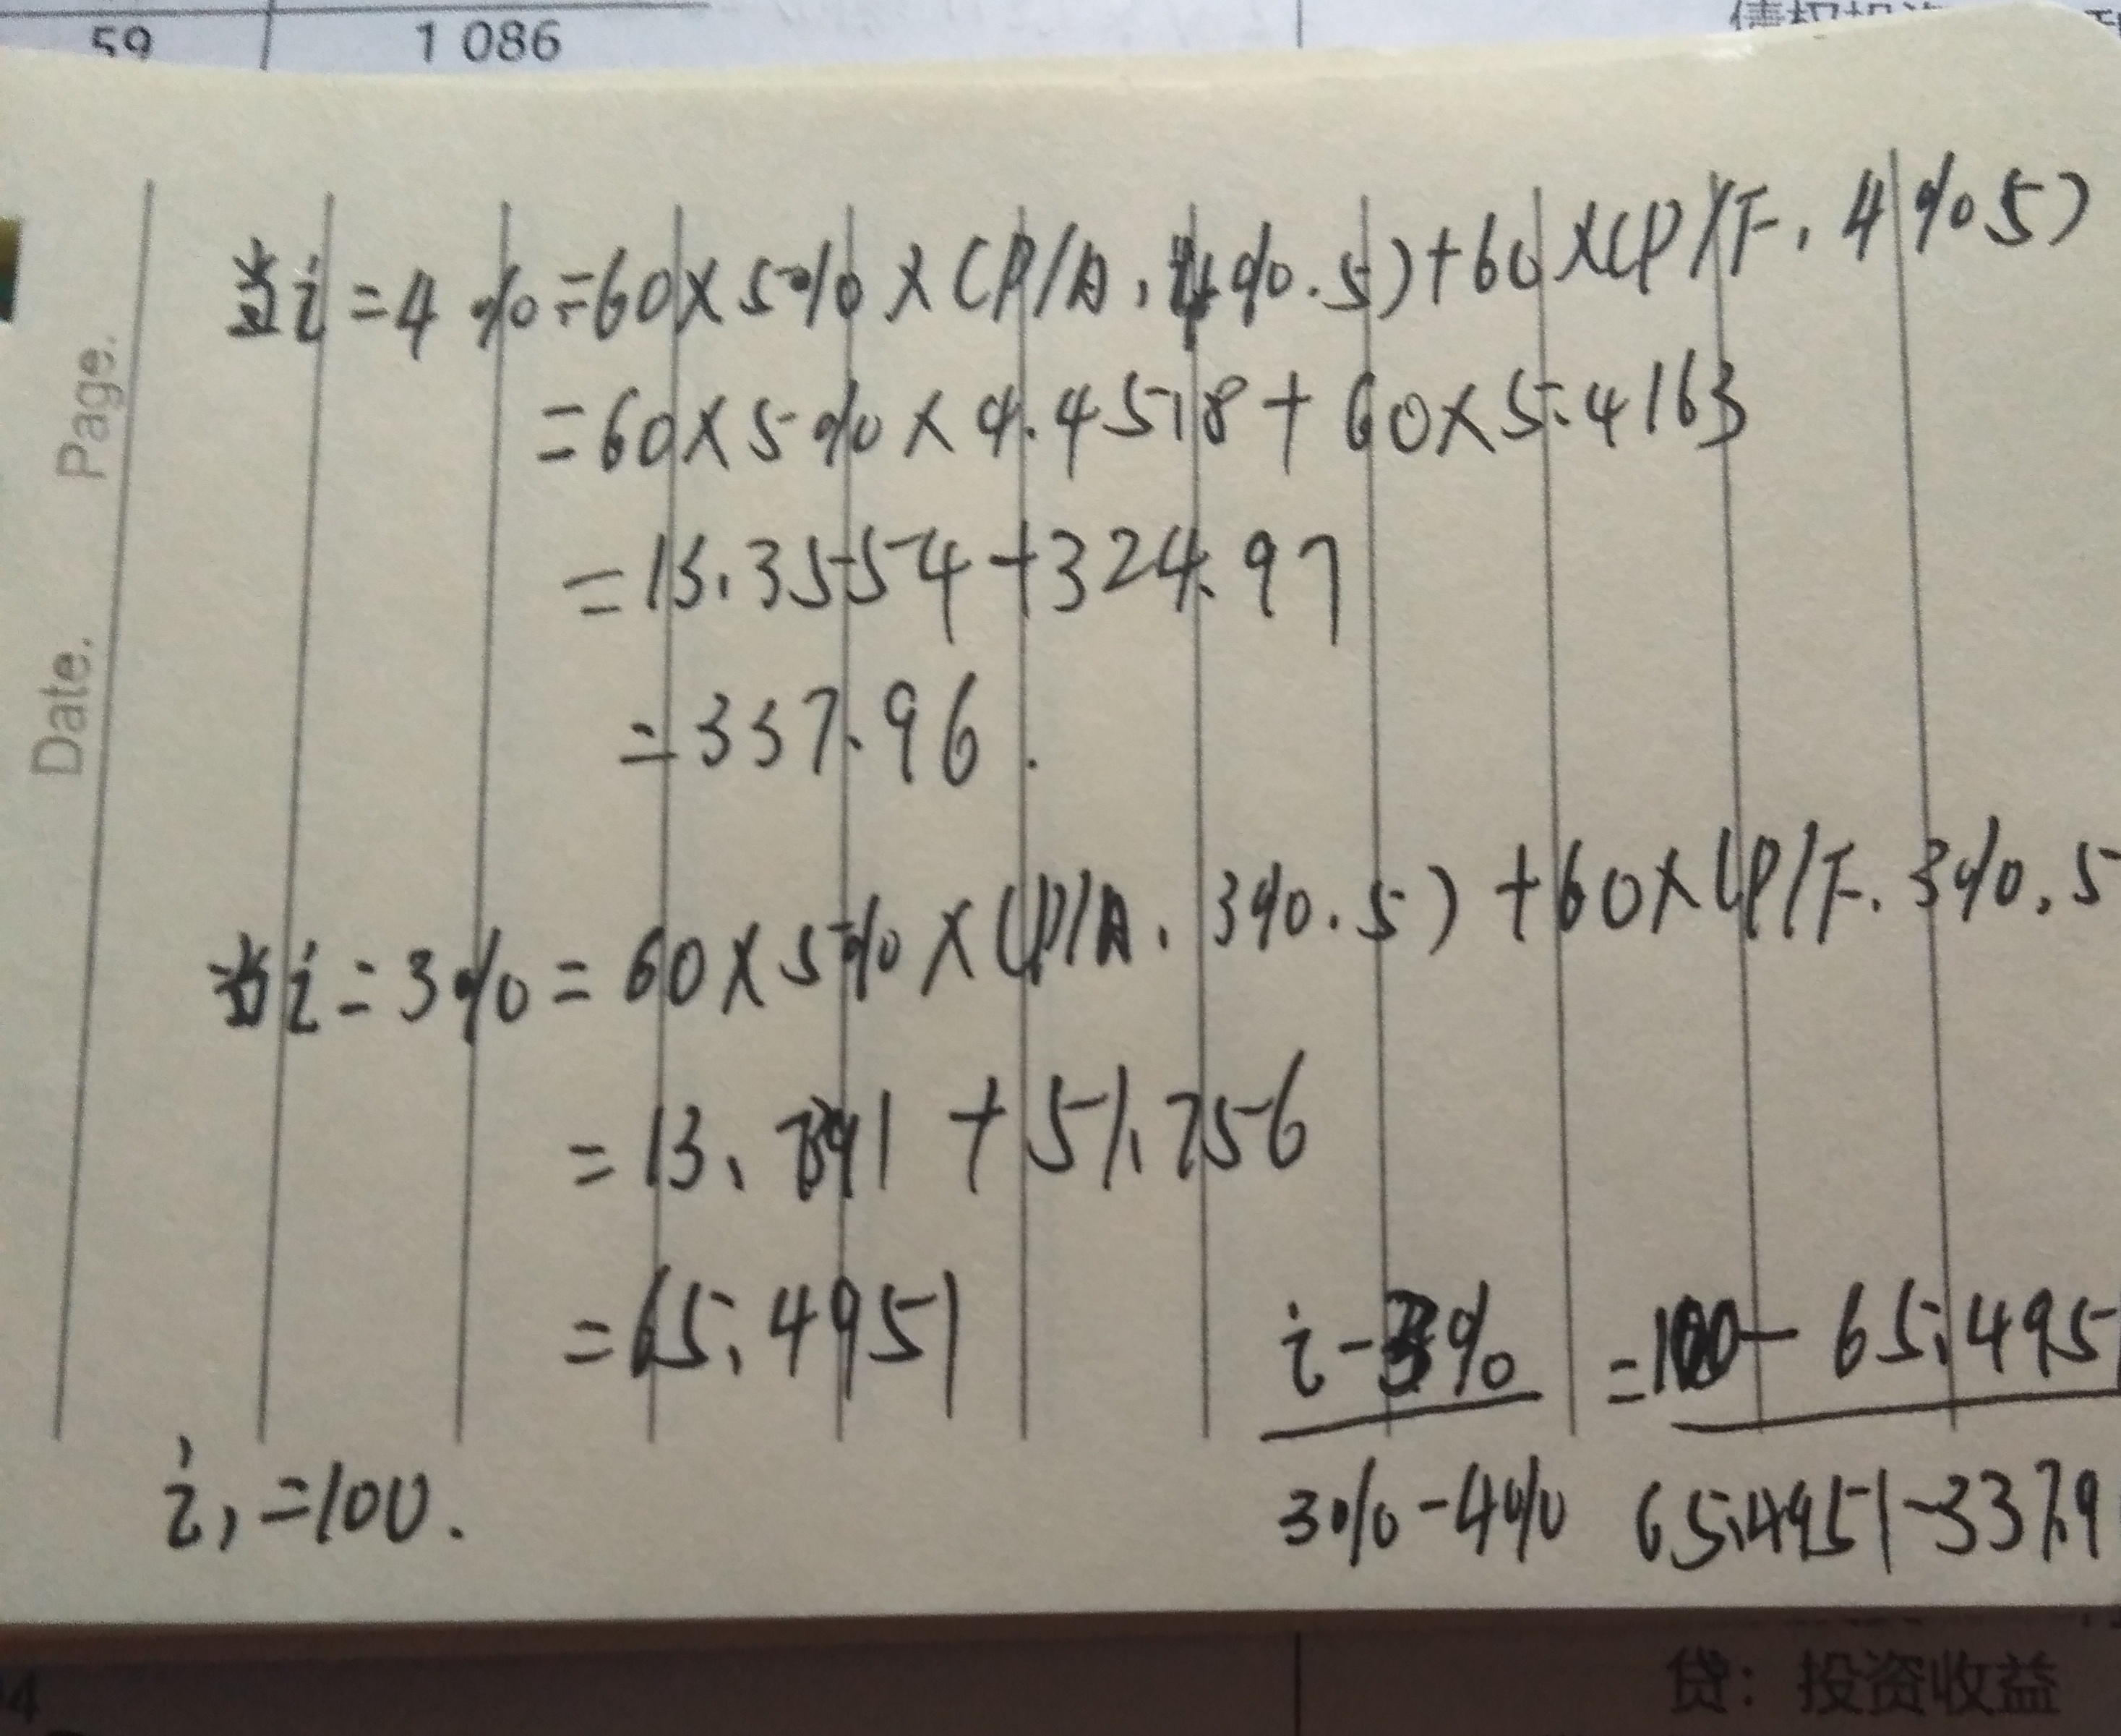 59 1 086
当i=4%=60×5%×(P/A,4%.5)+60×(P/F,4%5)
=60×5%×4.4518+60×5.4163
=13.3554+324.97
=337.96.
当i=3%=60×5%×(P/A.3%.5)+60×(P/F.3%.5
=13.7391+51.756
=65.4951
i-3% =100-65.495
3%-4% 65.4951-337.9
i,=100.
Page.
Date.
贷：投资收益